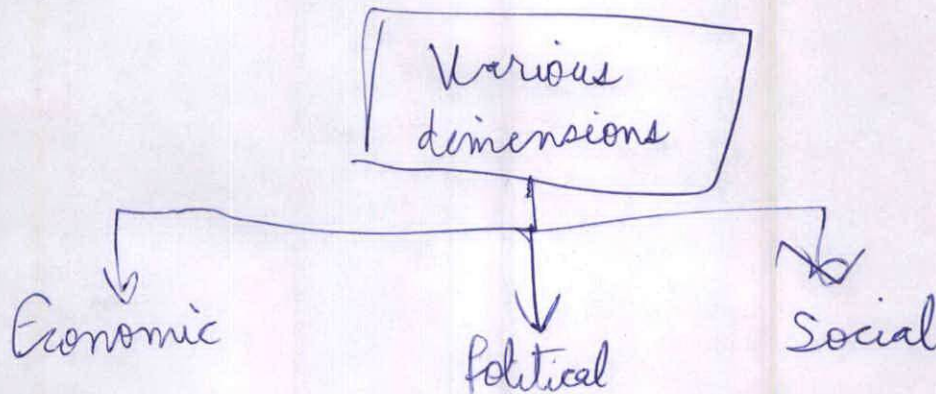 Various
dimensions
Economic
Political
Social